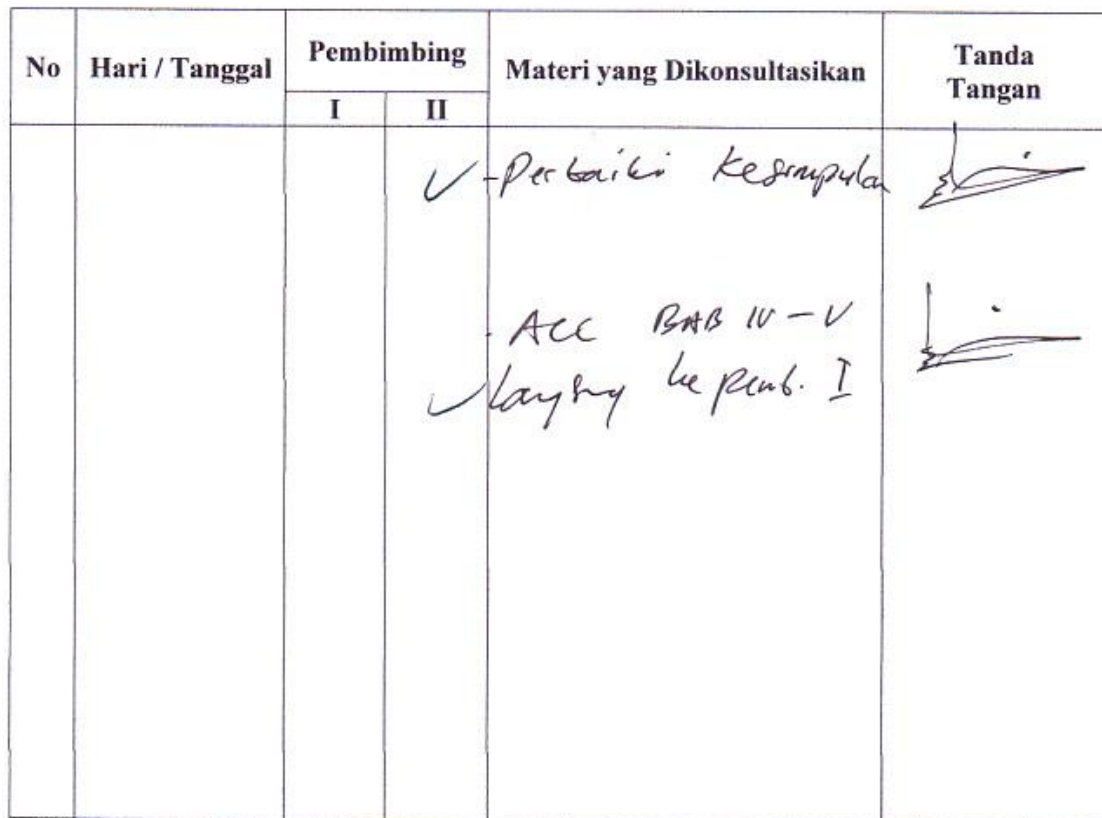 No Hari / Tanggal Pembimbing Materi yang Dikonsultasikan Tanda Tangan
I II
✓ - Perbaiki Kesimpulan
- ACC BAB IV - V
✓ Langsung ke pemb. I